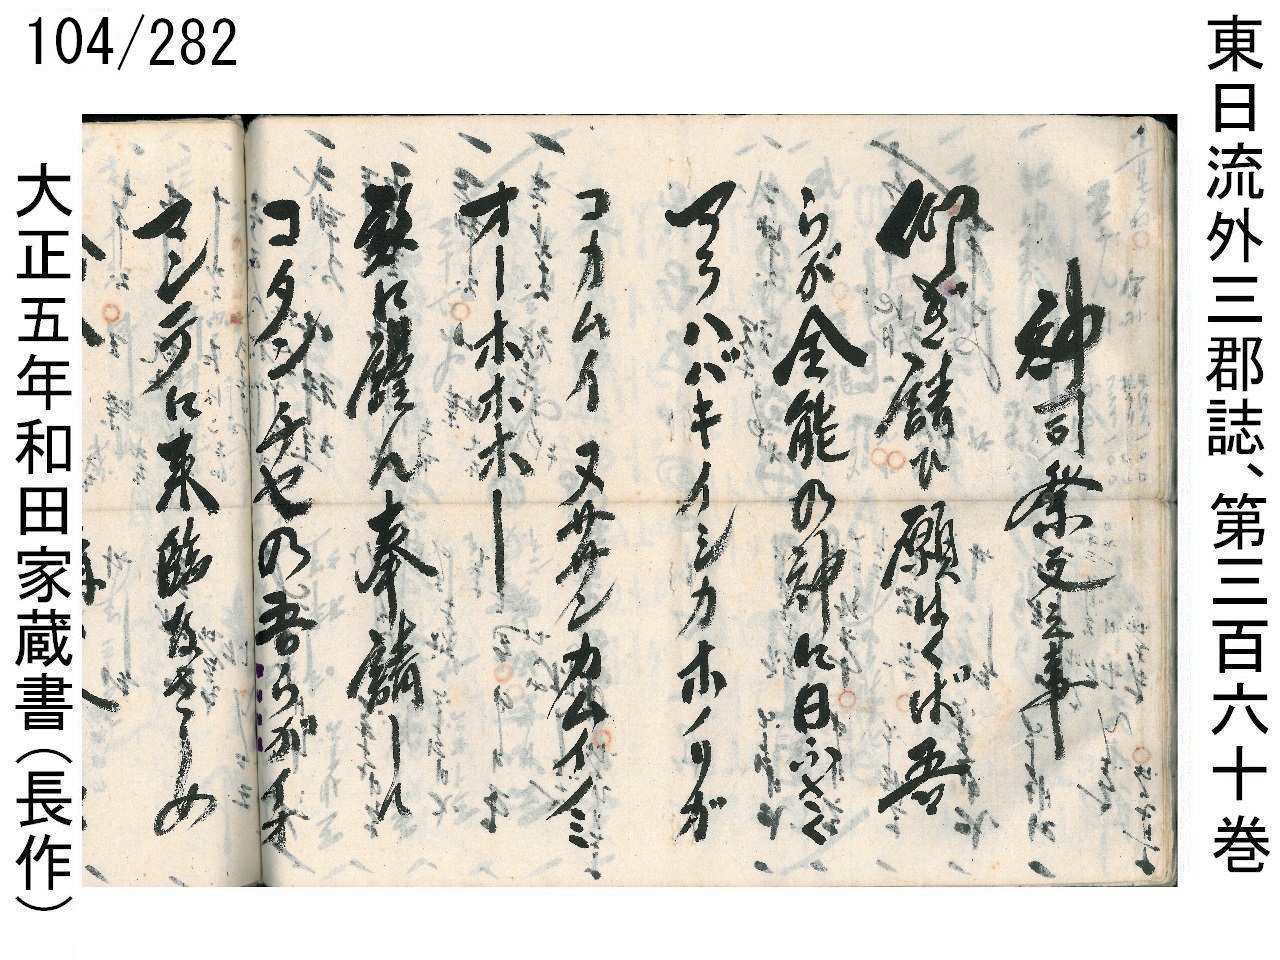 104/282
東日流外三郡誌、第三百六十巻
神司祭文之事
仰ぎ請ひ願はくば吾
らが全能の神に曰ふさく
アラハバキイシカホノリガ
コカムイ ヌササンカムイノミ
オーホホホー
茲に謹ん奉請し
コタンチセの吾らがイオ
マンテに来臨なさしめ
大正五年和田家蔵書(長作)